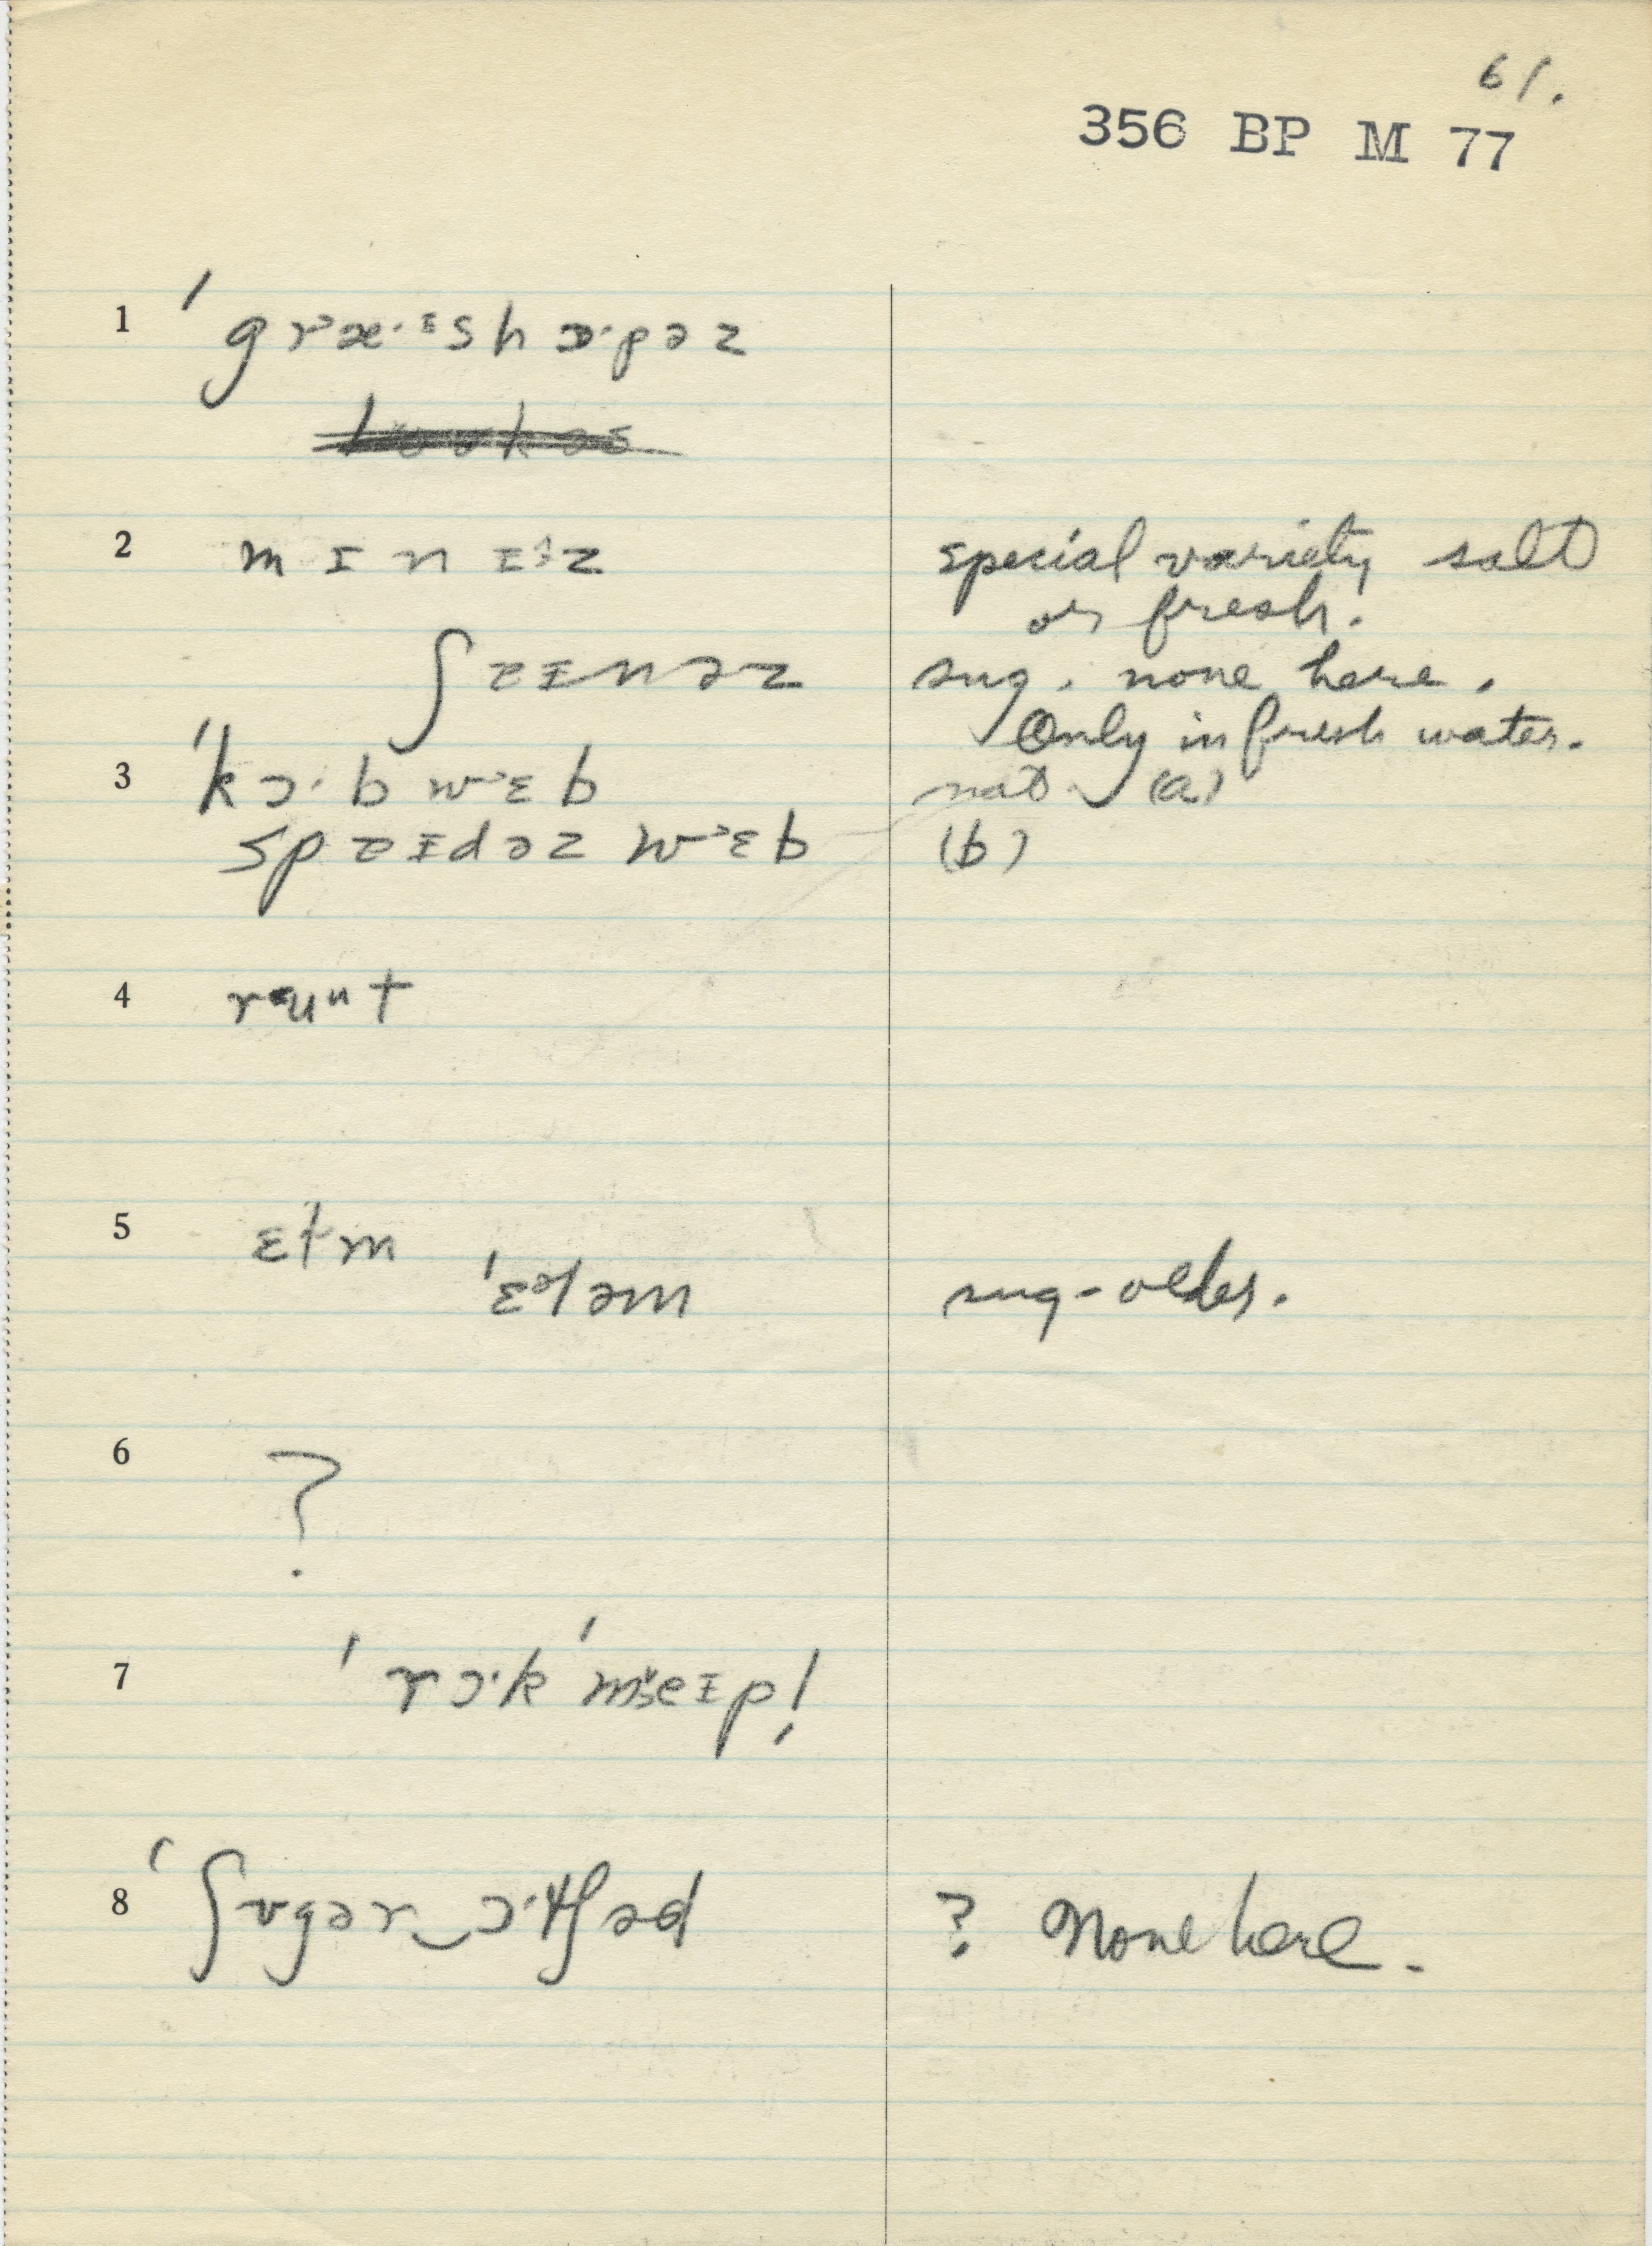 61.
356 BP M 77
1 ˈgræ·ᵻshɒ·pəz
2 mɪnɪz special variety salt
or fresh.
ʃɐɪnəz sug. none here.
Only in fresh water.
3 ˈkɔ·b wɛb not (a)
spɐɪdəz wɛb (b)
4 rʉnt
5 ɛłm
ˈɛləm sug-older.
6 ?
7 ˈrɔ·k ˈmeɪp!
8 ˈʃʊgər‿ɔ·tʃəd ? None here.